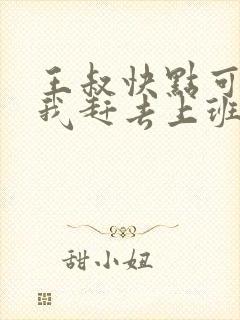 王叔快點可
我赶去上班
甜小妞